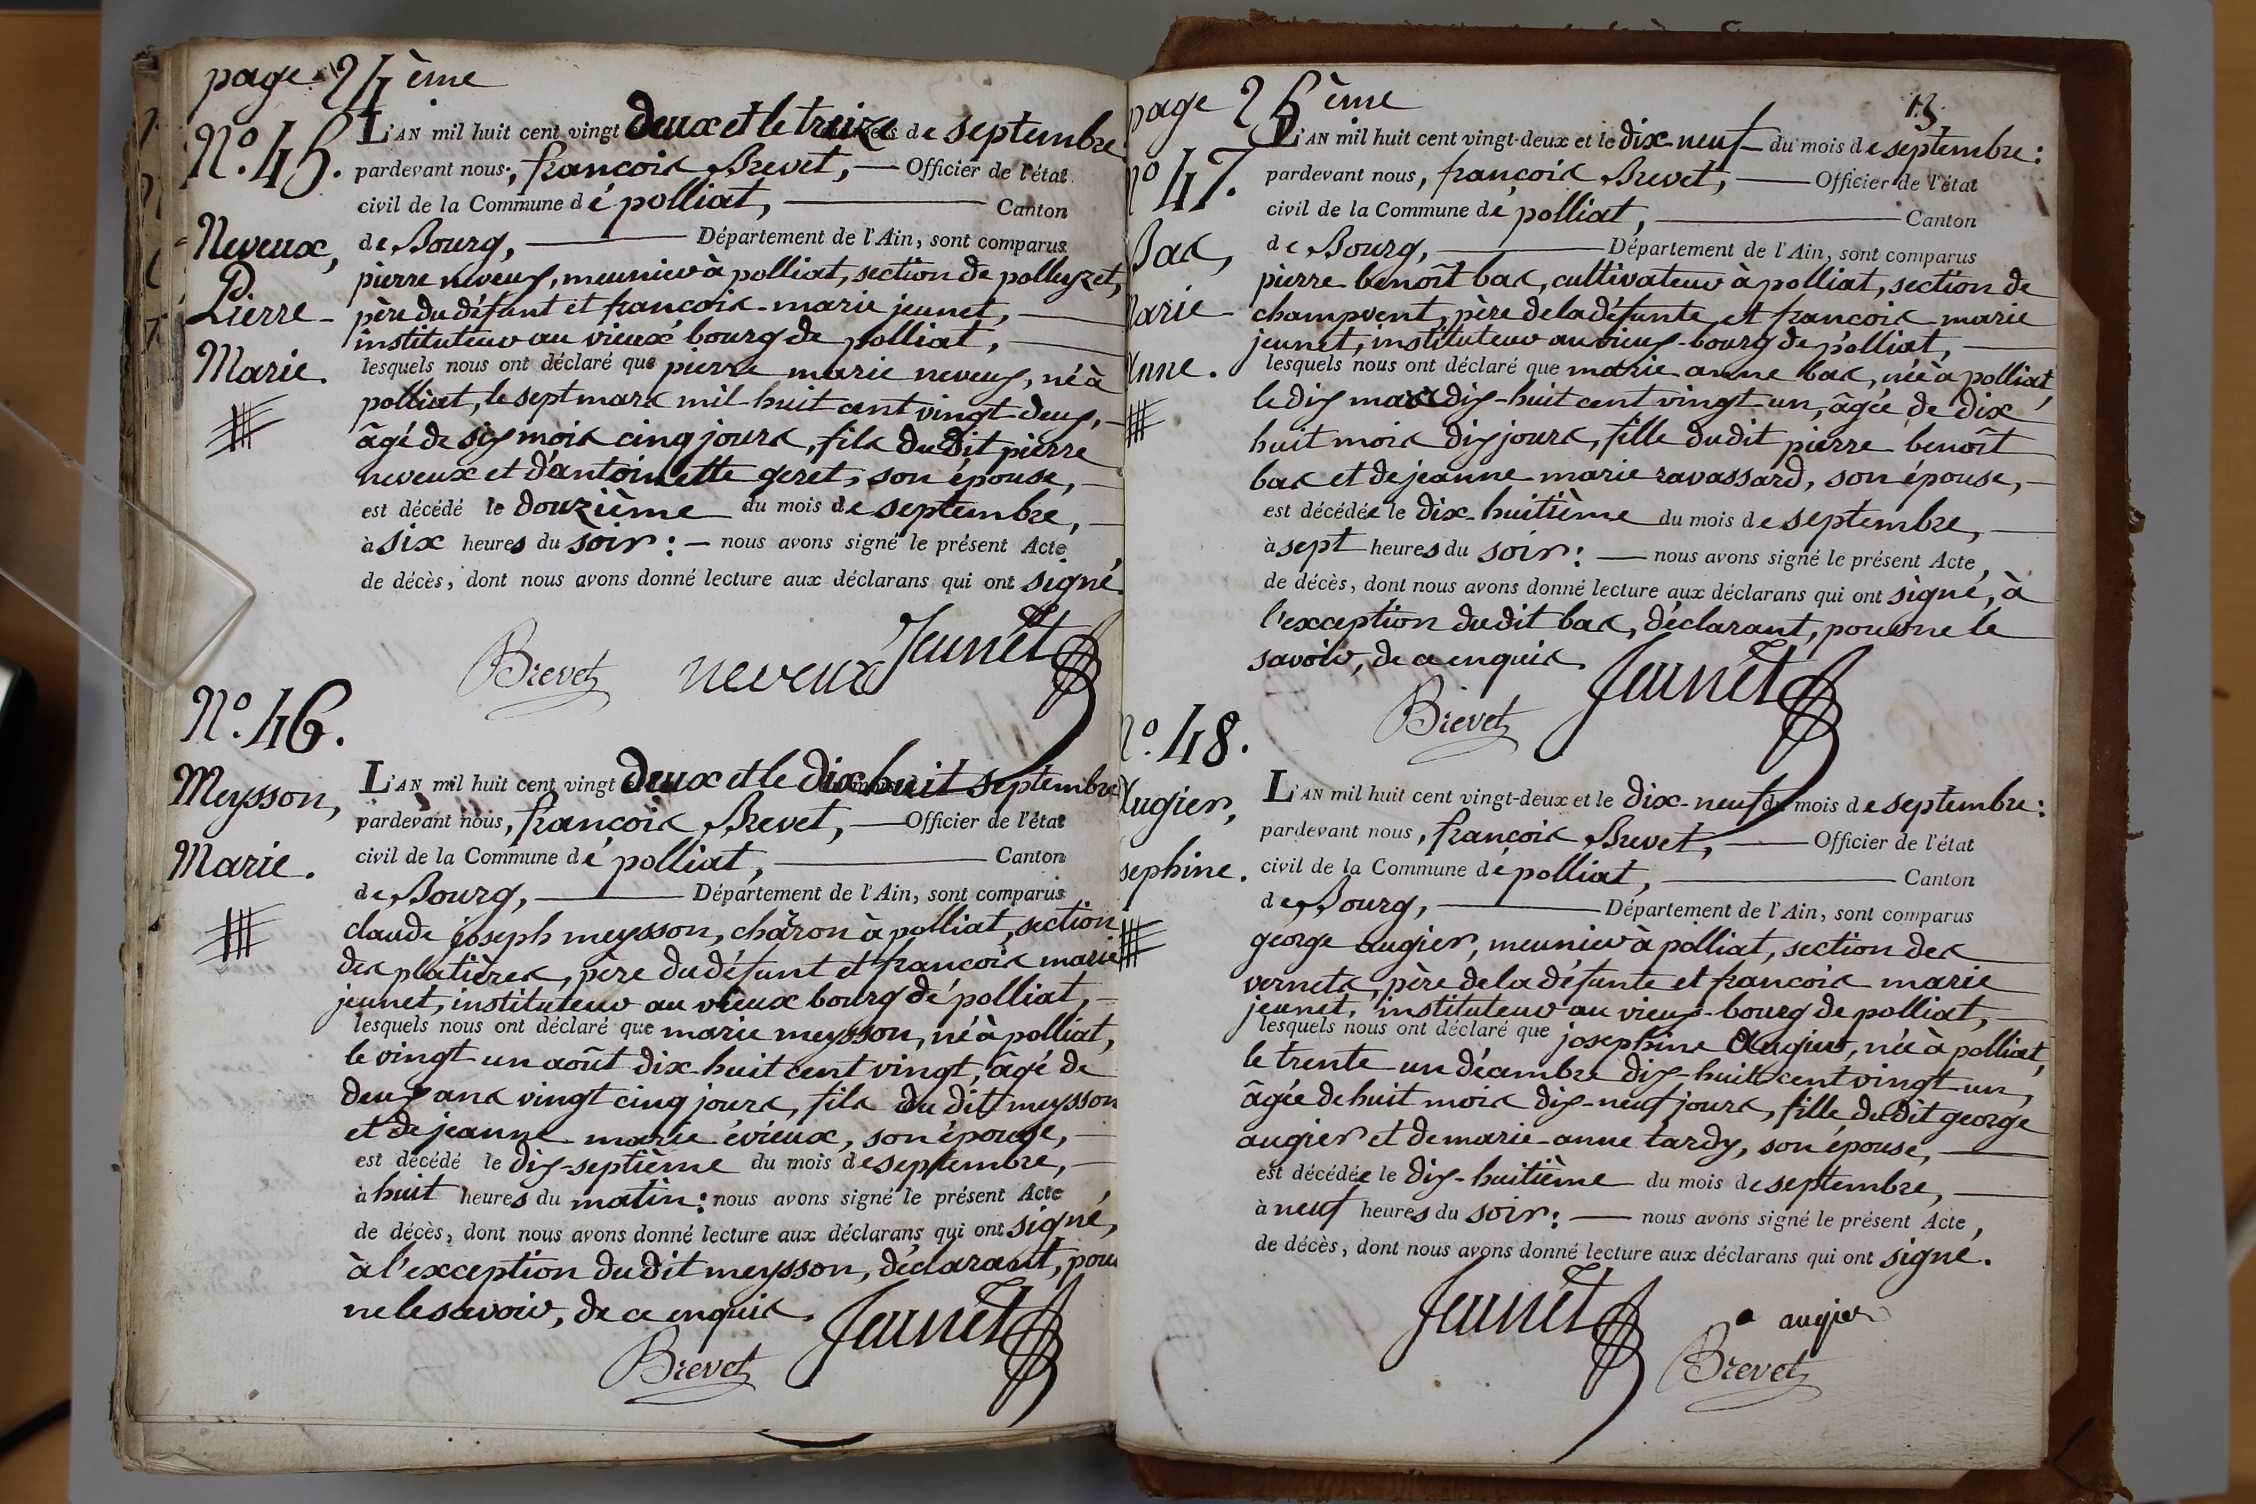 page 24ème
N.º 45.
Neveux,
Pierre-
Marie.
L'AN mil huit cent vingt deux et le treize du mois de septembre
pardevant nous, françois Brevet, — Officier de l'état
civil de la Commune dé polliat, — Canton
de Bourg, — Département de l'Ain, sont comparus
pierre neveux, meunier à polliat, section de polleyzet,
père du défunt et françois-marie jeunet, —
instituteur au vieux bourg de polliat, —
lesquels nous ont déclaré que pierre marie neveux, né à
polliat, le sept mars mil huit cent vingt-deux, —
âgé de six mois cinq jours, fils du dit pierre
neveux et d'antoinette geret, son épouse, —
est décédé le douzième du mois de septembre, —
à six heures du soir : — nous avons signé le présent Acte
de décès, dont nous avons donné lecture aux déclarans qui ont signé
Brevet neveux Jeunet
N.º 46.
Meysson,
Marie.
L'AN mil huit cent vingt deux et le dix huit septembre
pardevant nous, françois Brevet, — Officier de l'état
civil de la Commune dé polliat, — Canton
de Bourg, — Département de l'Ain, sont comparus
claude joseph meysson, chăron à polliat, section
des platières, père du défunt et françois marie
jeunet, instituteur au vieux bourg dé polliat, —
lesquels nous ont déclaré que marie meysson, né à polliat,
le vingt-un août dix-huit cent vingt, âgé de
deux ans vingt cinq jours, fils du dit meysson
et de jeanne marie évieux, son épouse, —
est décédé le dix-septième du mois de septembre, —
à huit heures du matin : nous avons signé le présent Acte,
de décès, dont nous avons donné lecture aux déclarans qui ont signé,
à l'exception du dit meysson, déclarant, pour
ne le savoir, de ce enquis.
Jeunet
Brevet
page 25ème
13.
nº 47.
Bas,
Marie-
Anne.
L'AN mil huit cent vingt-deux et le dix-neuf du mois de septembre :
pardevant nous, françois Brevet, — Officier de l'état
civil de la Commune dé polliat, — Canton
de Bourg, — Département de l'Ain, sont comparus
pierre benoît bas, cultivateur à polliat, section de
champvent, père de la défunte et françois marie
jeunet, instituteur au vieux-bourg de polliat, —
lesquels nous ont déclaré que marie anne bas, née à polliat,
le dix mars dix-huit cent vingt un, âgée de dix
huit mois dix jours, fille du dit pierre benoît
bas et de jeanne marie ravassard, son épouse, —
est décédée le dix-huitième du mois de septembre, —
à sept heures du soir : — nous avons signé le présent Acte,
de décès, dont nous avons donné lecture aux déclarans qui ont signé, à
l'exception du dit bas, déclarant, pour ne le
savoir, de ce enquis.
Jeunet
Brevet
nº 48.
Augier,
sephine.
L'AN mil huit cent vingt-deux et le dix-neuf du mois de septembre :
pardevant nous, françois Brevet, — Officier de l'état
civil de la Commune dé polliat, — Canton
de Bourg, — Département de l'Ain, sont comparus
george augier, meunier à polliat, section des
vernets, père de la défunte et françois marie
jeunet, instituteur au vieux-bourg de polliat, —
lesquels nous ont déclaré que josephine Augier, née à polliat,
le trente un décembre dix-huit cent vingt-un,
âgée de huit mois dix-neuf jours, fille du dit george
augier et de marie-anne tardy, son épouse, —
est décédée le dix-huitième du mois de septembre, —
à neuf heures du soir : — nous avons signé le présent Acte,
de décès, dont nous avons donné lecture aux déclarans qui ont signé.
Jeunet
augier
Brevet